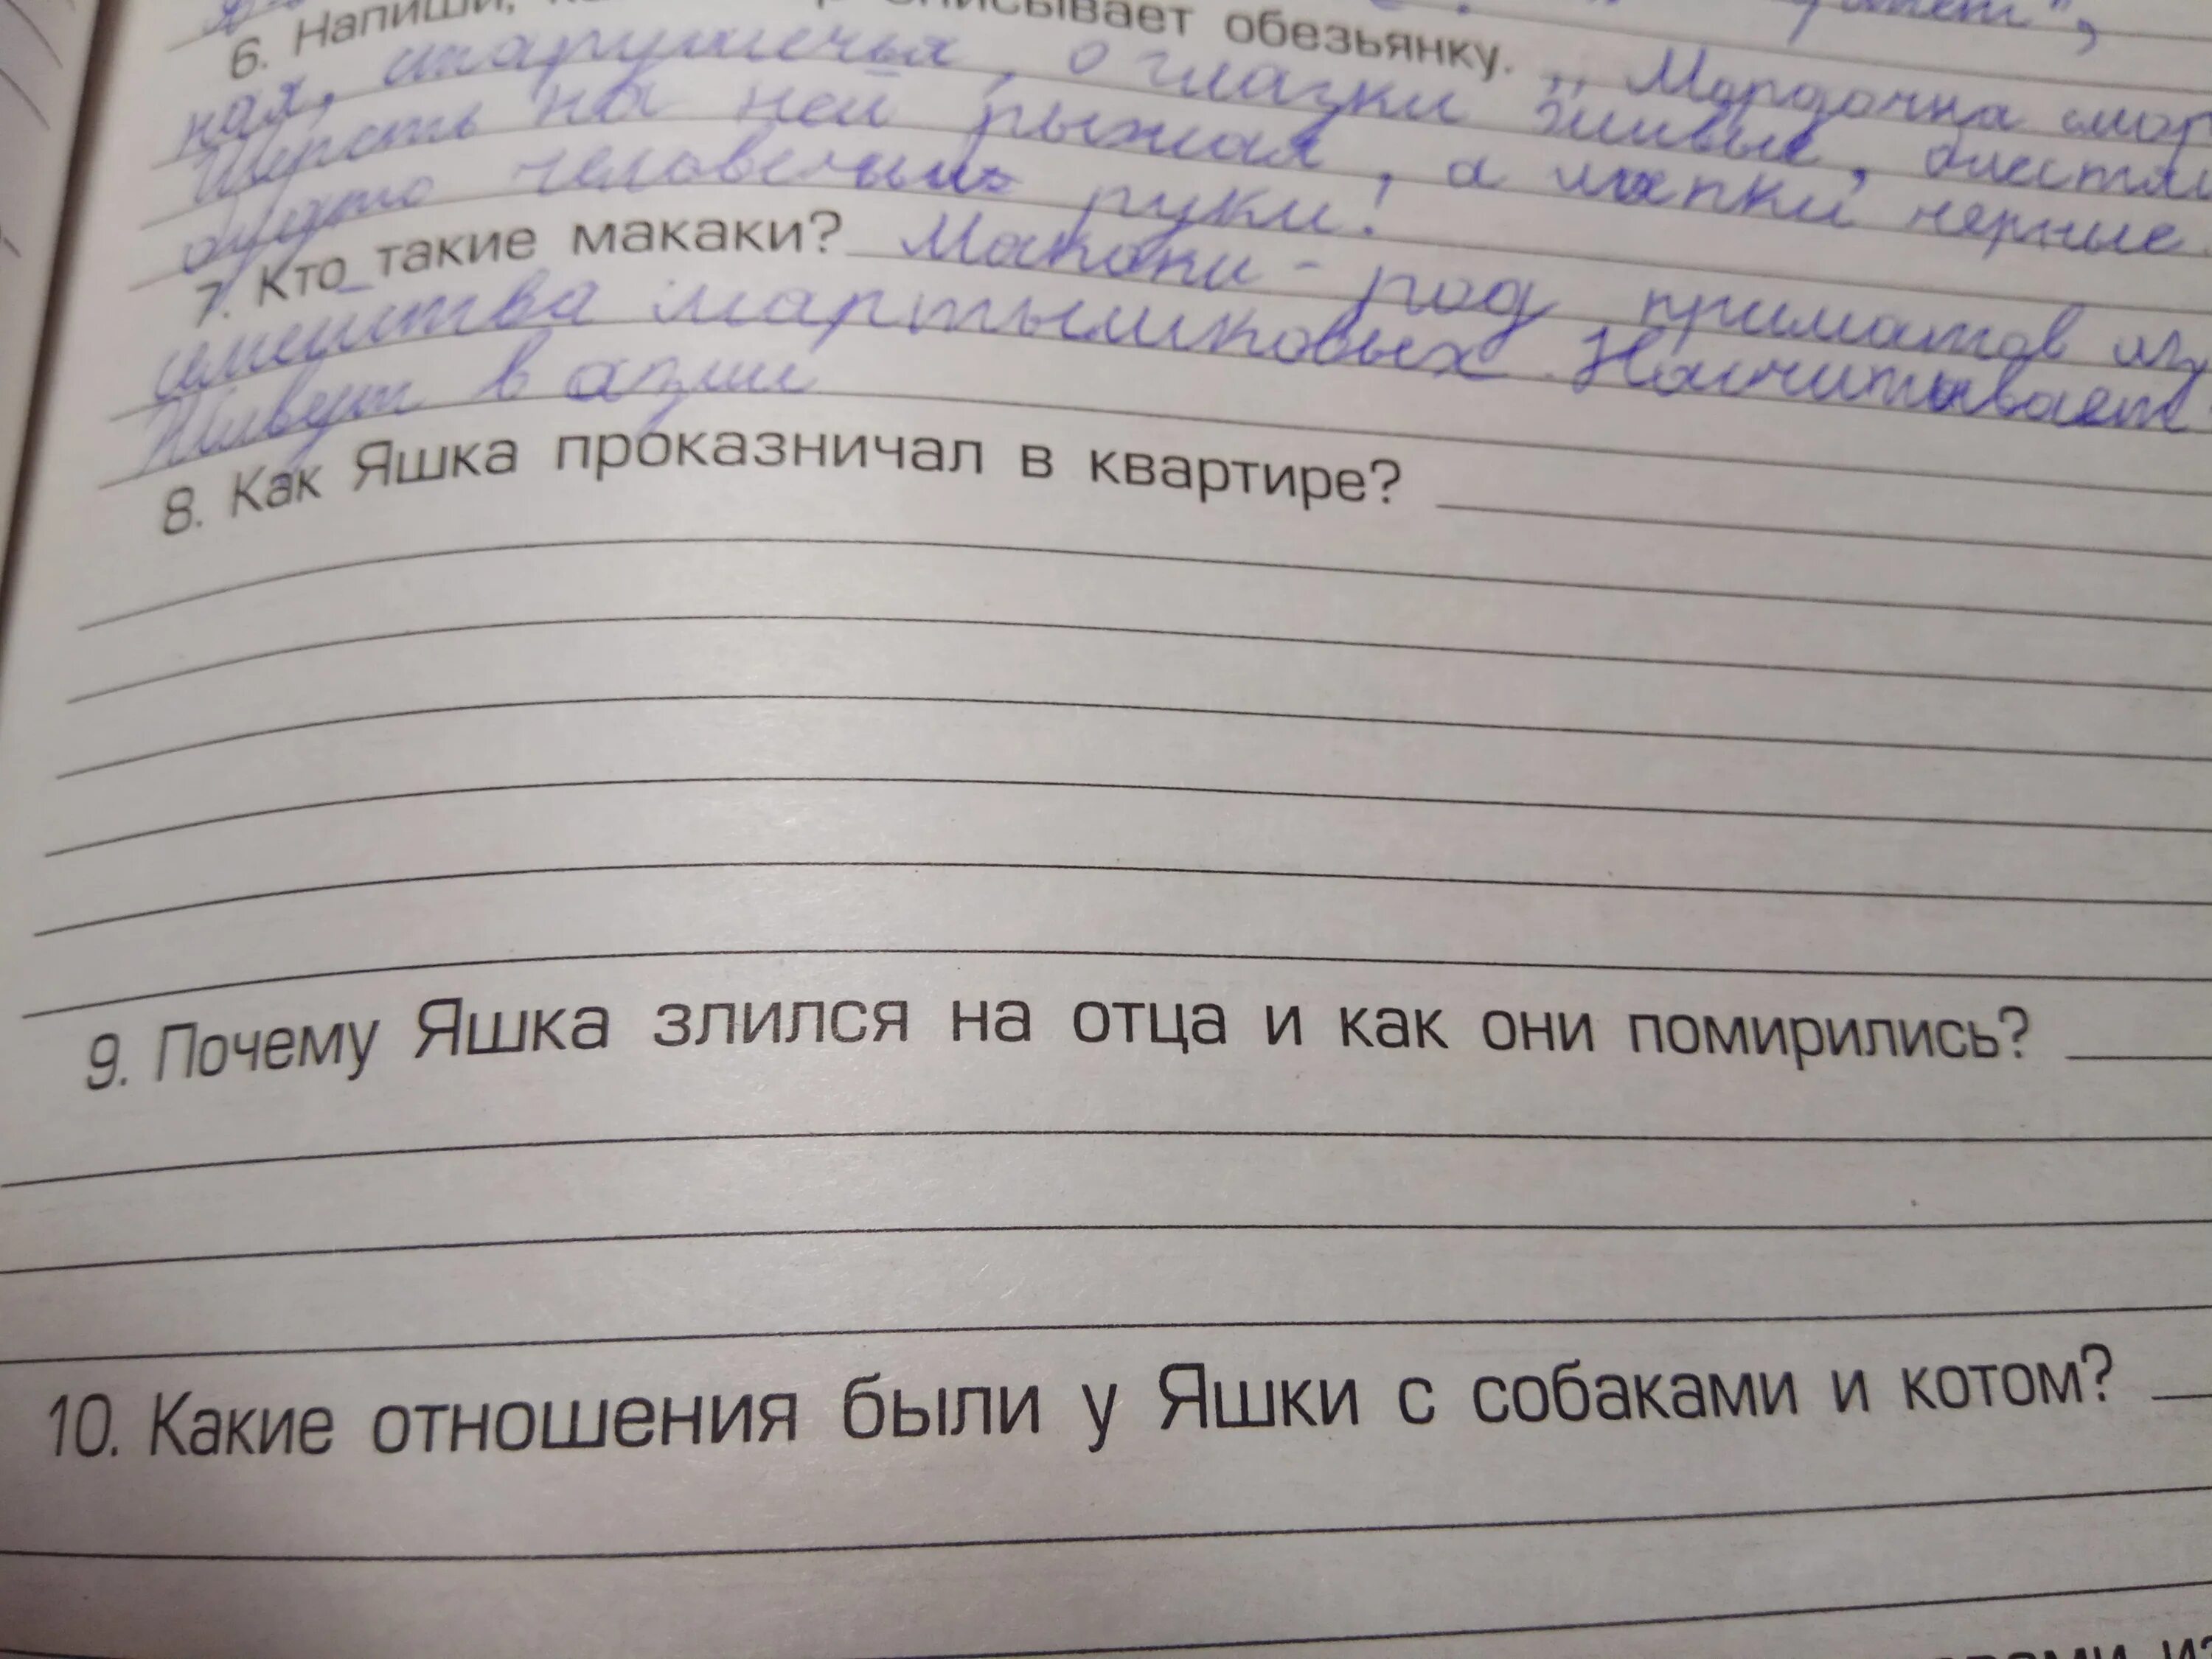 6. Напиши, описывает обезьянку. „Мордочка смор
ная, старушечья, а глазки живые, блестя
Шерсть на ней рыжая, а лапки черные.
будто человечьи руки!
7. Кто такие макаки? Макаки - род приматов из
семейства мартышковых. Насчитывает
Живут в азии
8. Как Яшка проказничал в квартире?
9. Почему Яшка злился на отца и как они помирились?
10. Какие отношения были у Яшки с собаками и котом?